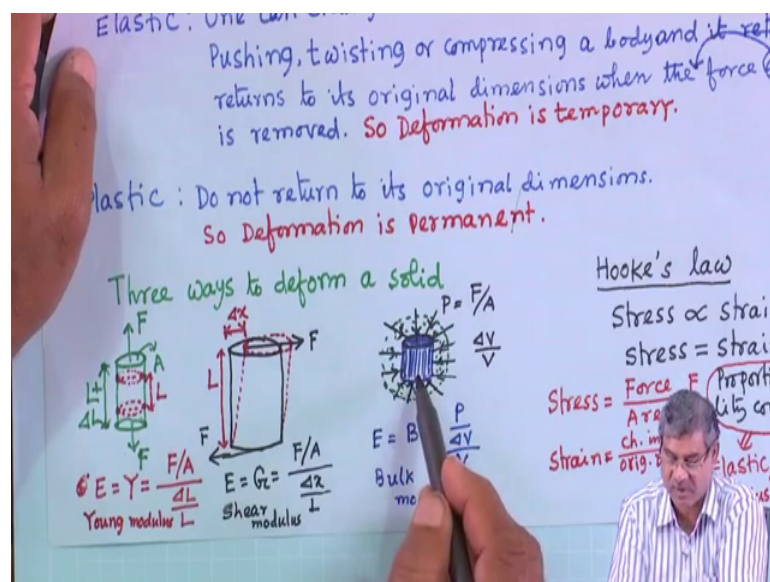 Elastic: One can
Pushing, twisting or compressing a body and it
returns to its original dimensions when the force
is removed. So Deformation is temporary.
Plastic: Do not return to its original dimensions.
So Deformation is Permanent.
Three ways to deform a solid
F
A
L+ΔL
L
F
E = Y = F/A / ΔL/L
Young modulus
Δx
F
L
F
E = G = F/A / Δx/L
Shear modulus
P = F/A
ΔV/V
E = B P / ΔV/V
Bulk
Hooke's law
Stress ∝
stress =
Stress = Force
Strain =